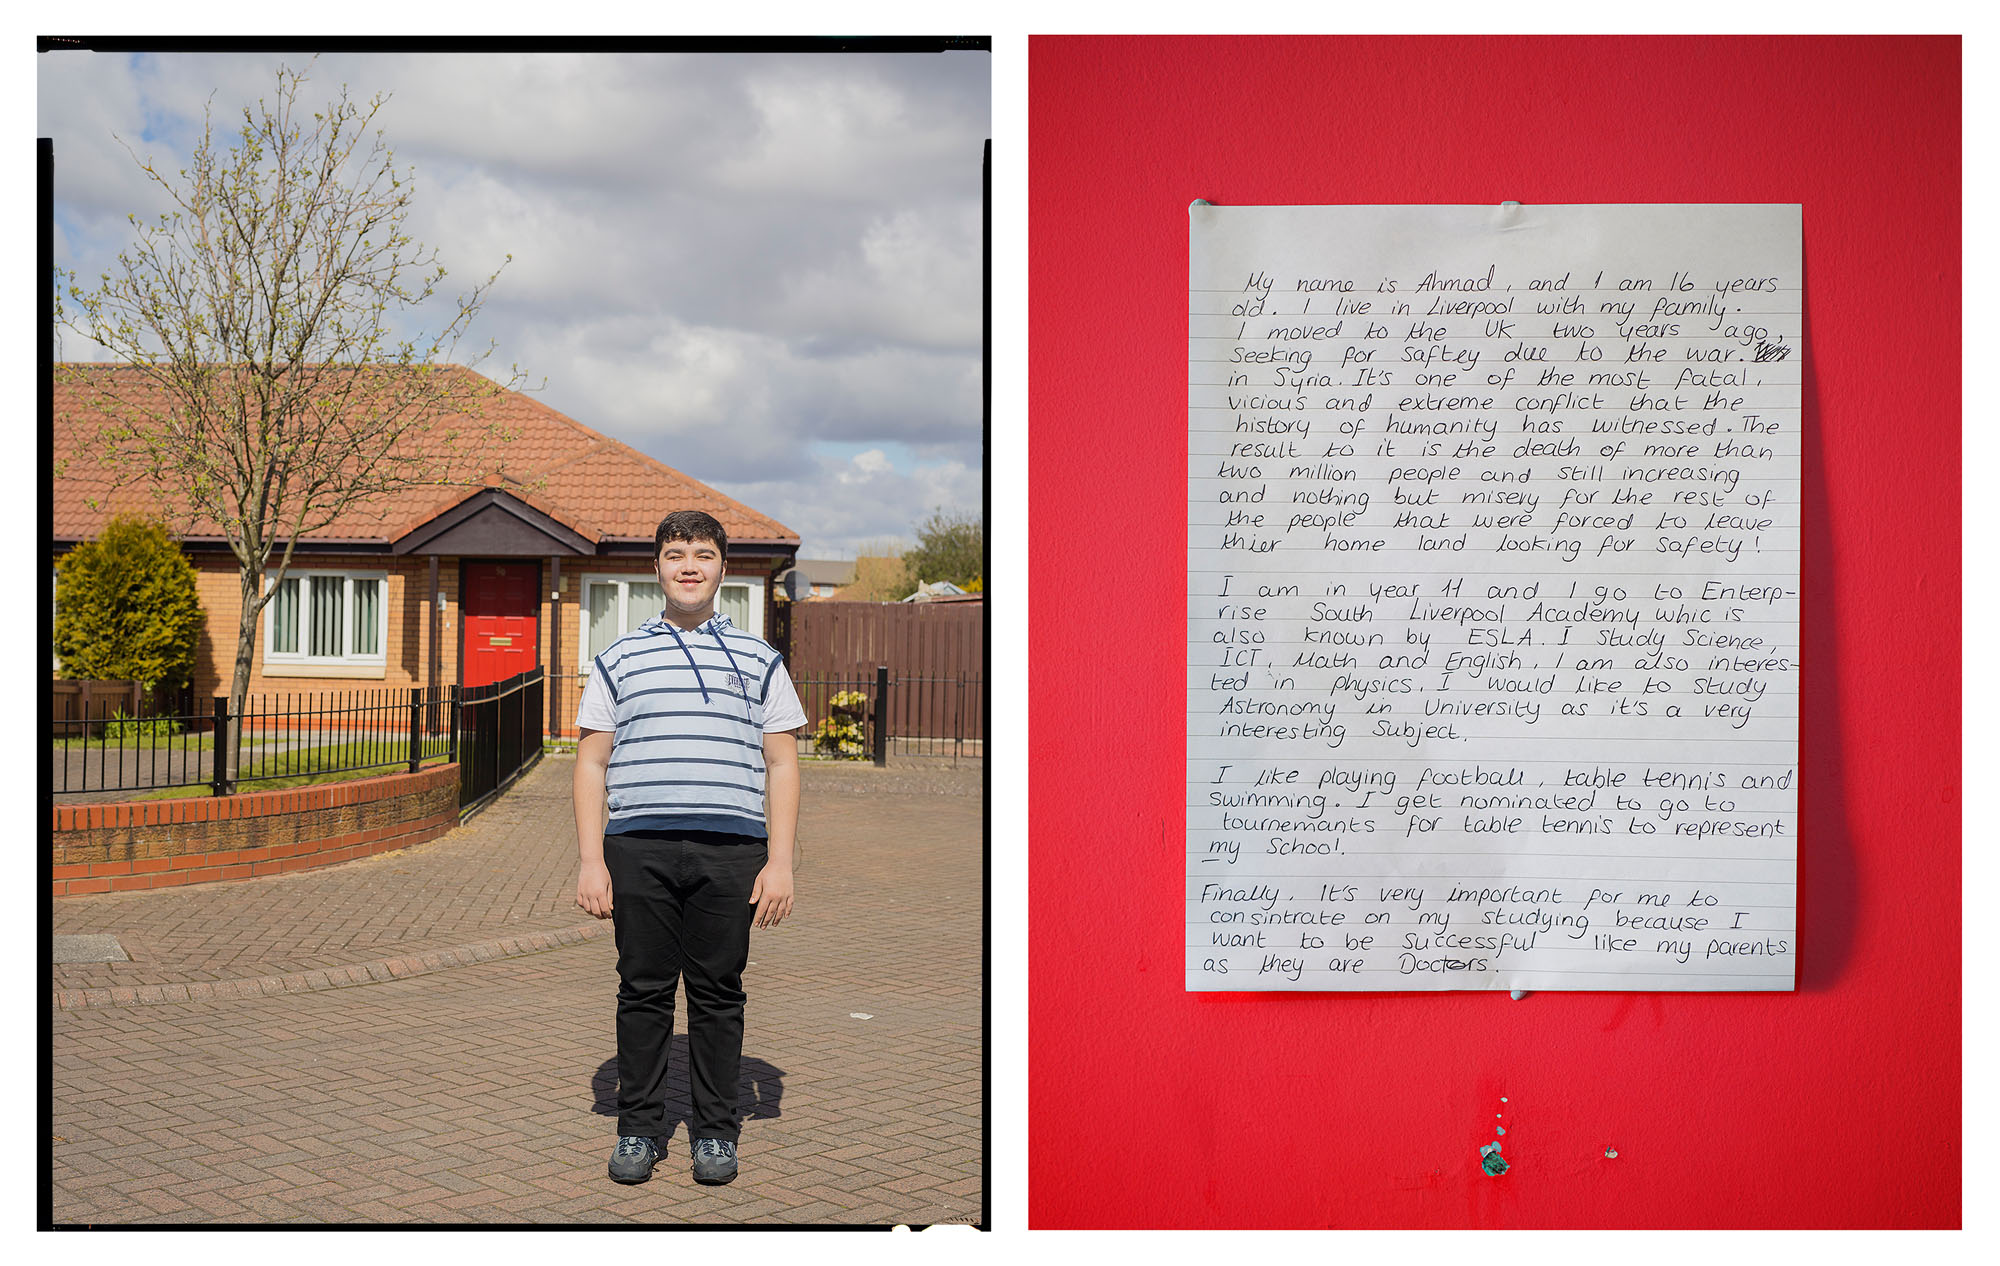 My name is Ahmad, and I am 16 years
old. I live in Liverpool with my family.
I moved to the UK two years ago,
seeking for saftey due to the war.
in Syria. It's one of the most fatal,
vicious and extreme conflict that the
history of humanity has witnessed. The
result to it is the death of more than
two million people and still increasing
and nothing but misery for the rest of
the people that were forced to leave
thier home land looking for safety!
I am in year 11 and I go to Enterp-
rise South Liverpool Academy whic is
also known by ESLA. I study Science,
ICT, Math and English, I am also interes-
ted in physics. I would like to study
Astronomy in University as it's a very
interesting Subject.
I like playing football, table tennis and
swimming. I get nominated to go to
tournemants for table tennis to represent
my School.
Finally, It's very important for me to
consintrate on my studying because I
want to be successful like my parents
as they are Doctors.